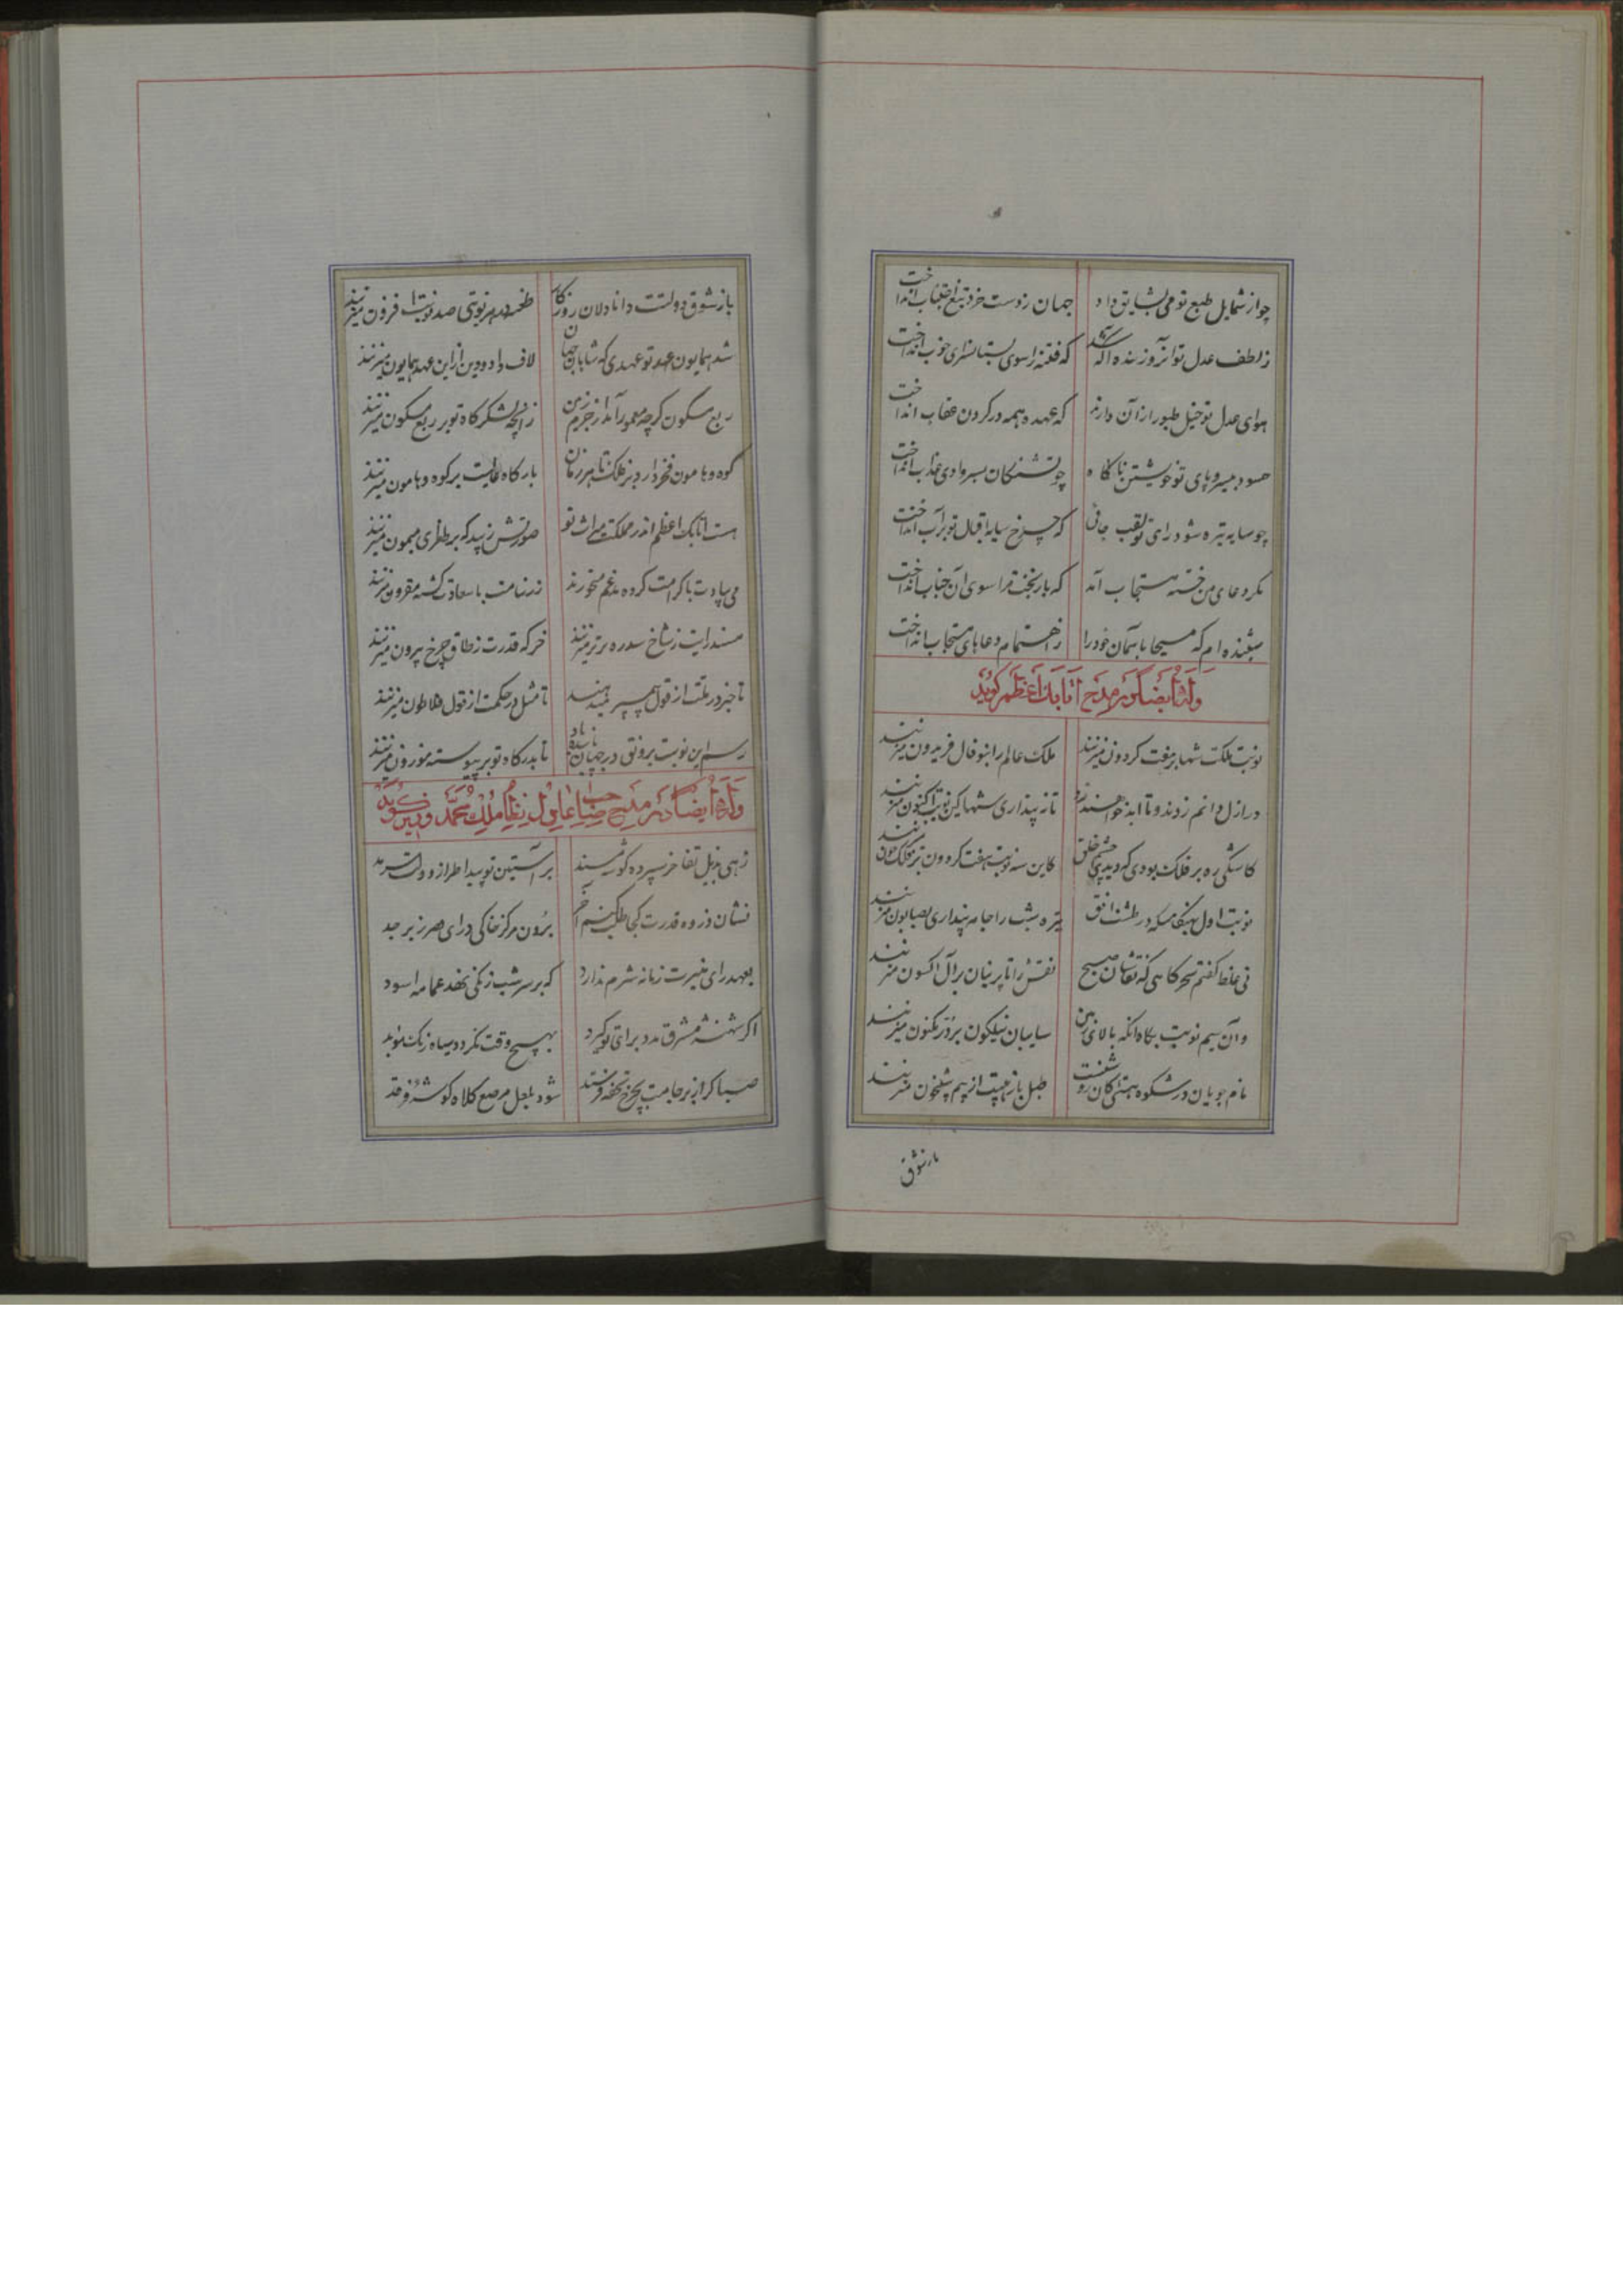 چو از شمایل طبع تو می بشایق داد جهان ز دست خرد تیغ اجتناب انداخت
ز لطف عدل تو آنروز بنده آگه شد که فتنه را سوی بستانسرای خواب انداخت
هوای عدل تو خیل طیور از آن دارند که عهده همه در گردن عقاب انداخت
حسود بیسروپای تو خویشتن ناگاه چو تشنگان بسر وادی عذاب انداخت
چو سایه تیره شود رای تو لقب جانی که چرخ سایه اقبال تو بر آب انداخت
مگر دعای من خسته مستجاب آمد که باز بخت مرا سوی آن جناب انداخت
شنیده ام که مسیحا بآسمان خود را ز اهتمام دعاهای مستجاب انداخت
وله ایضا در مدح اتابک اعظم گوید
نوبت ملکت شها بر هفت گردون میزنند ملک عالم را بنو فال فریدون میزنند
در ازل دانم زدند و تا ابد خواهند زد تا نپنداری شها کین نوبت اکنون میزنند
کاشکی ره بر فلک بودی که دیدی چشم خلق کاین سه نوبت هفت گردون بر فلک چون میزنند
نوبت اول بهنگامیکه در طشت افق تیره شب را جامه پنداری بصابون میزنند
نی غلط گفتم سحرگاهی که نقاشان صبح نقش را تا پرنیان بر آل اکسون میزنند
وآن سیم نوبت بگاه آنکه بالای زمین سایبان نیلگون بر در مکنون میزنند
نام جویان در شکوه طبل باز هیبت از بیم شبخون میزنند
باز شوق
باز شوق دولتت دانادلان روزگار طعنه در هر نوبتی صد نوبت افزون میزنند
شد همایون عهد تو عهدی که شاهان جهان لاف داد و دین از این عهد همایون میزنند
ربع مسکون گرچه معمور آمد از جرم زمین زآنچه لشکرگاه تو بر ربع مسکون میزنند
کوه و هامون فخر دارد بر فلک تا هر زمان بارگاه عالیت بر کوه و هامون میزنند
هست اتابک اعظم اندر مملکت میراث تو صورتش زیبد که بر طغرای میمون میزنند
می بیادت با کرامت کرده مدغم میخورند زر بنامت با سعادت گشته مقرون میزنند
مسند رایت ز شاخ سدره برتر مینهند خرگه قدرت ز طاق چرخ بیرون میزنند
تا خبر در ملت از قول پیمبر میدهند تا مثل در حکمت از قول فلاطون میزنند
رسم این نوبت برونق در جهان پاینده باد تا بدرگاه تو بر پیوسته موزون میزنند
وله ایضا در مدح صاحب عادل نظام الملک محمد وزیر گوید
زهی بذیل تفاخر سپرده گوشه مسند بر آستین تو پیدا طراز دولت سرمد
نشان ذروه قدرت کجا طلب کنم آخر برون مرکز خاکی ورای صرح زبرجد
بعهد رای منیرت زمانه شرم ندارد که بر سر شب زنگی نهد عمامه اسود
اگر شهنشه مشرق مدد برای تو گیرد بهیچ وقت نگردد سیاه رنگ مؤید
صبا گر از بر جاهت بچرخ تحفه فرستد شود بلعل مرصع کلاه گوشه فرقد